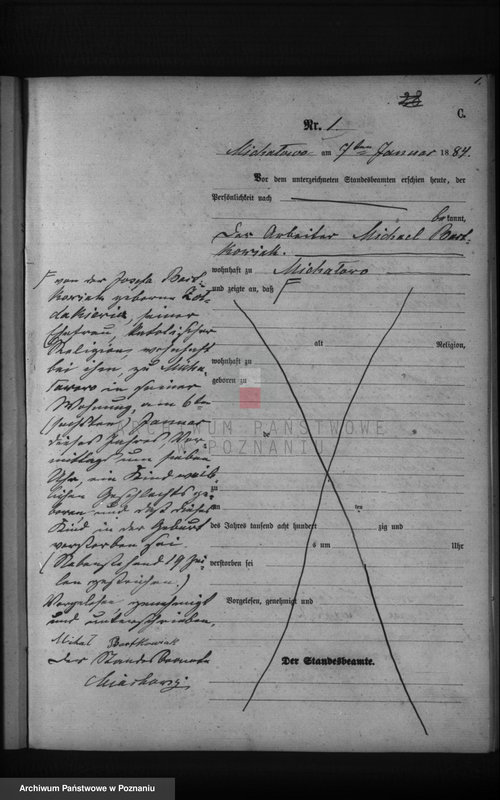 1.
28
C.
Nr. 1
Michałowo am 7ten Januar 1884.
Vor dem unterzeichneten Standesbeamten erschien heute, der
Persönlichkeit nach
bekannt,
der Arbeiter Michael Bart-
kowiak.
wohnhaft zu Michałowo
und zeigte an, daß F
alt Religion,
wohnhaft zu
geboren zu
ARCHIWUM PAŃSTWOWE
W POZNANIU
zu
am ten
des Jahres tausend acht hundert zig und
s um Uhr
verstorben sei
Vorgelesen, genehmigt und
Der Standesbeamte.
F von der Josepha Bart-
kowiak geborene
seiner
Ehefrau, katholischer
Religion wohnhaft
bei ihm, zu Micha-
łowo in seiner
Wohnung, am 6ten
(sechsten) Januar
dieses Jahres Vor-
mittags um sieben
Uhr, ein Kind weib-
lichen Geschlechts ge-
boren und daß dieses
Kind in der Geburt
verstorben sei
(Nebenstehend 19 Zei-
len gestrichen.)
Vorgelesen genehmigt
und unterschrieben,
Michał Bartkowiak
Der Standesbeamte
Archiwum Państwowe w Poznaniu